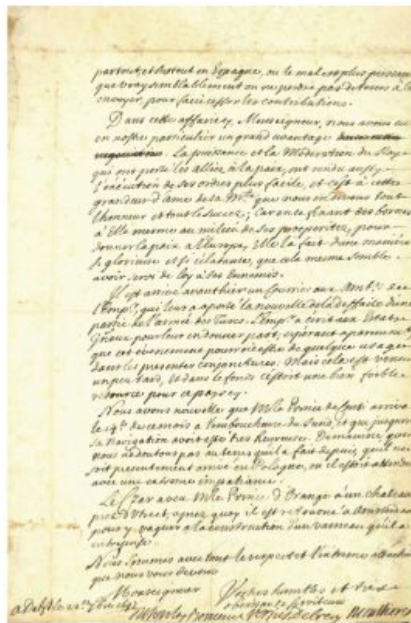 partout, et surtout en Espagne, ou le mal est plus pressant
que vraysemblablement on ne perdra pas de temps à le
envoyer, pour faire cesser les contributions.
Dans cette affaire cy, Monseigneur, nous avons eu
en nostre particulier un grand avantage
La puissance et la Moderation du Roy
qui ont porté les alliez à la paix, ont rendu aussy
l'execution de ses ordres plus facile, et c'est à cette
grandeur d'ame de sa Mté que nous en devons tout
l'honneur et tout le succez; car en se fixant des bornes
à Elle mesme au milieu de ses prosperitez, pour
donner la paix a l'Europe, Elle l'a fait d'une maniere
si glorieuse et si éclatante, que cela mesme semble
avoir servi de loy à ses Ennemis.
Il est arrivé avanthier un Courrier aux Ambrs de
l'Empr, qui leur a aporté la nouvelle de la deffaite d'une
partie de l'armée des Turcs. L'Empr a écrit aux Estats
Gñaux pour leur en donner part, esperant aparemment
que cet évenement pourroit estre de quelque usage
dans les presentes conjonctures. Mais cela est venu
un peu tard, et dans le fonds c'estoit une bien foible
ressource pour ce pays cy.
Nous avons nouvelle que M. le Prince de Conti arriva
le de ce mois a l'embouchure du Sund, et que jusques
sa Navigation avoit esté tres heureuse. De maniere que
nous ne doutons pas qu'il n'ait fait depuis, qu'il ne
soit presentement arrivé en Pologne, ou il estoit attendu
avec une extreme impatiance.
Le Czar a veu M. le Prince d'Orange à un chateau
pres d'Utrect, apres quoy il est retourné à Amsterdam
pour y vaquer a la construction d'un vaisseau qu'il a
entreprise.
Nous sommes avec tout le respect et l'extreme attachement
que nous vous devons
Monseigneur
Vos tres humbles et tres
obeissants serviteurs
a Delft le
De Harlay Bonneuil Verjus de Crecy De Callieres